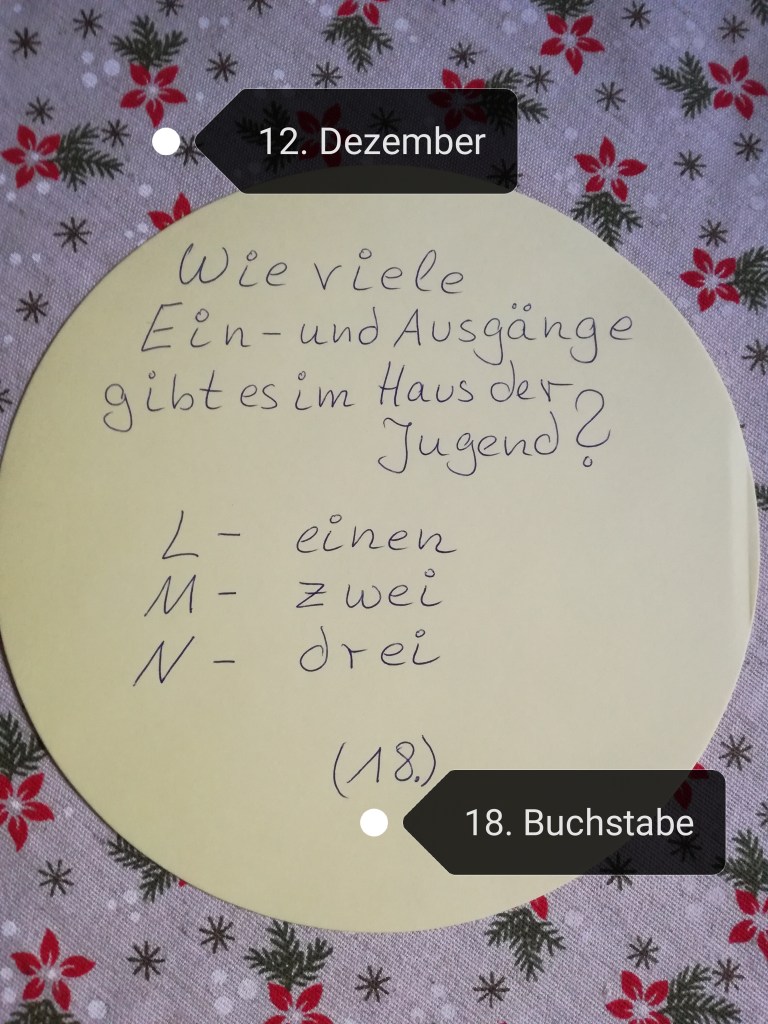 12. Dezember
Wie viele
Ein- und Ausgänge
gibt es im Haus der
Jugend?
L - einen
M - zwei
N - drei
(18.)
18. Buchstabe